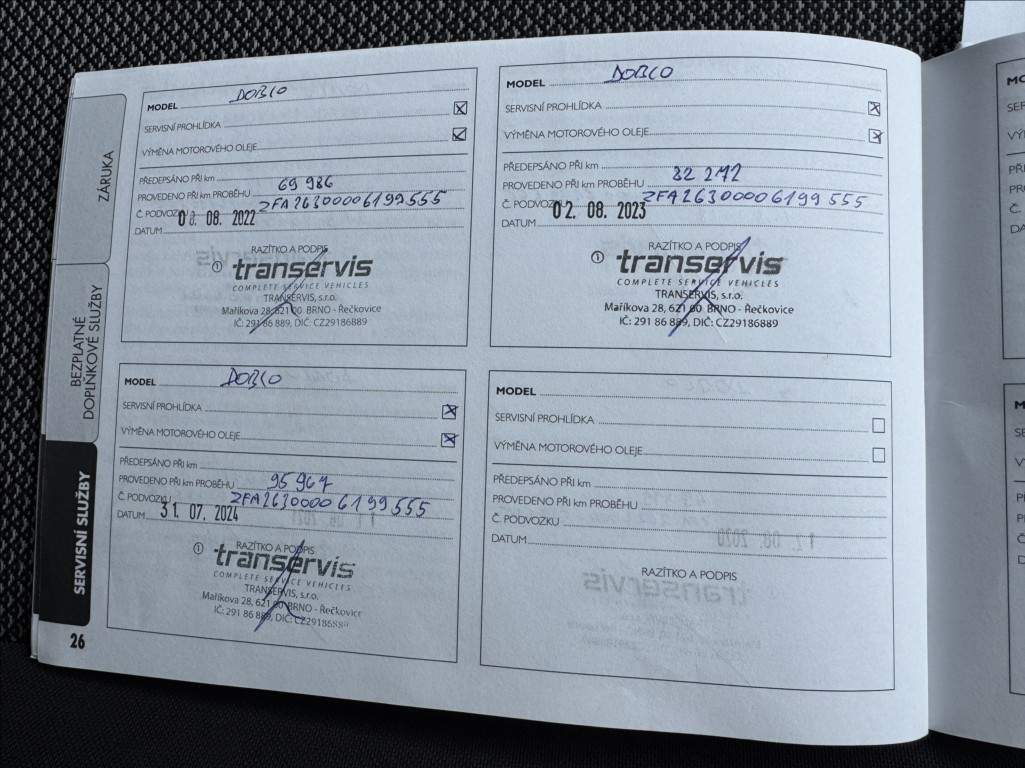 ZÁRUKA
BEZPLATNÉ
DOPLŇKOVÉ SLUŽBY
SERVISNÍ SLUŽBY
26
MODEL DOBLO
SERVISNÍ PROHLÍDKA
VÝMĚNA MOTOROVÉHO OLEJE
PŘEDEPSÁNO PŘI km
PROVEDENO PŘI km PROBĚHU 69 986
Č. PODVOZKU ZFA26300006199555
DATUM 08. 2022
RAZÍTKO A PODPIS
1 transervis
COMPLETE SERVICE VEHICLES
TRANSERVIS, s.r.o.
Maříkova 28, 621 00 BRNO - Řečkovice
IČ: 291 86 889, DIČ: CZ29186889
MODEL DOBLO
SERVISNÍ PROHLÍDKA
VÝMĚNA MOTOROVÉHO OLEJE
PŘEDEPSÁNO PŘI km
PROVEDENO PŘI km PROBĚHU 82 272
Č. PODVOZKU ZFA26300006199555
DATUM 02. 08. 2023
RAZÍTKO A PODPIS
1 transervis
COMPLETE SERVICE VEHICLES
TRANSERVIS, s.r.o.
Maříkova 28, 621 00 BRNO - Řečkovice
IČ: 291 86 889, DIČ: CZ29186889
MODEL DOBLO
SERVISNÍ PROHLÍDKA
VÝMĚNA MOTOROVÉHO OLEJE
PŘEDEPSÁNO PŘI km
PROVEDENO PŘI km PROBĚHU 95 967
Č. PODVOZKU ZFA26300006199555
DATUM 31. 07. 2024
RAZÍTKO A PODPIS
1 transervis
COMPLETE SERVICE VEHICLES
TRANSERVIS, s.r.o.
Maříkova 28, 621 00 BRNO - Řečkovice
IČ: 291 86 889, DIČ: CZ29186889
MODEL
SERVISNÍ PROHLÍDKA
VÝMĚNA MOTOROVÉHO OLEJE
PŘEDEPSÁNO PŘI km
PROVEDENO PŘI km PROBĚHU
Č. PODVOZKU
DATUM
RAZÍTKO A PODPIS